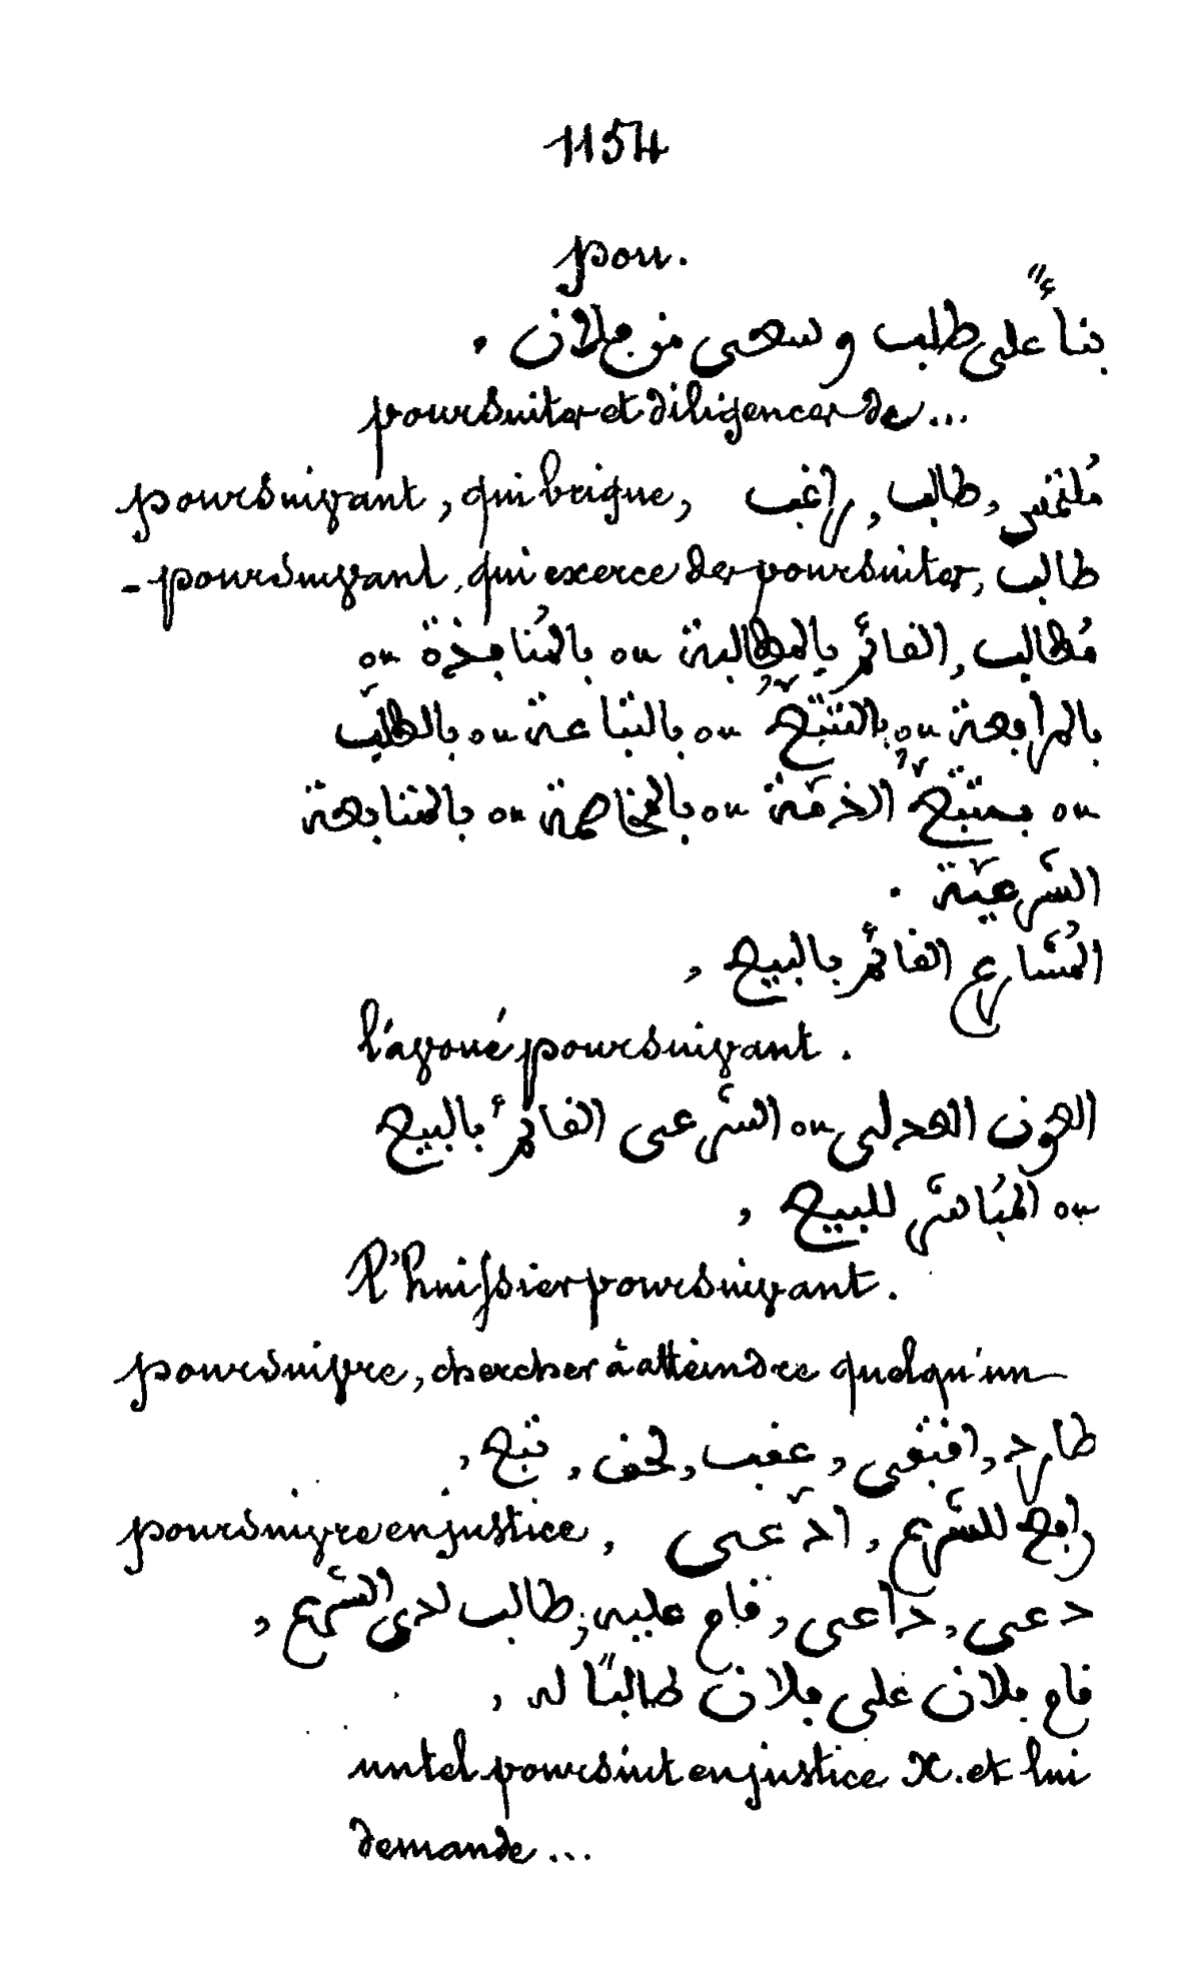 1154
pou.
بناءً على طلب وسعي من فلان .
poursuites et diligences de...
poursuivant, qui brigue, مُلتمس, طالب, راغب
- poursuivant, qui exerce des poursuites, طالب
مُطالب, القائم بالمطالبة ou بالمُنافذة ou
بالمرافعة ou بالتتبّع ou بالتباعة ou بالطلب
ou بمتتبّع الذمّة ou بالمخاصمة ou بالمتابعة
الشّرعيّة .
المُشارع القائم بالبيع ,
l'avoué poursuivant.
العون العدلي ou الشّرعي القائم بالبيع
ou المُباشر للبيع ,
l'huissier poursuivant.
poursuivre, chercher à atteindre quelqu'un
طارد, اقتفى, عقب, لحق, تبع,
poursuivre en justice, رافع للشّرع, ادّعى
دعى, داعى, قام عليه, طالب لدى الشّرع ,
قام فلان على فلان طالبًا له ,
un tel poursuit en justice X. et lui
demande...